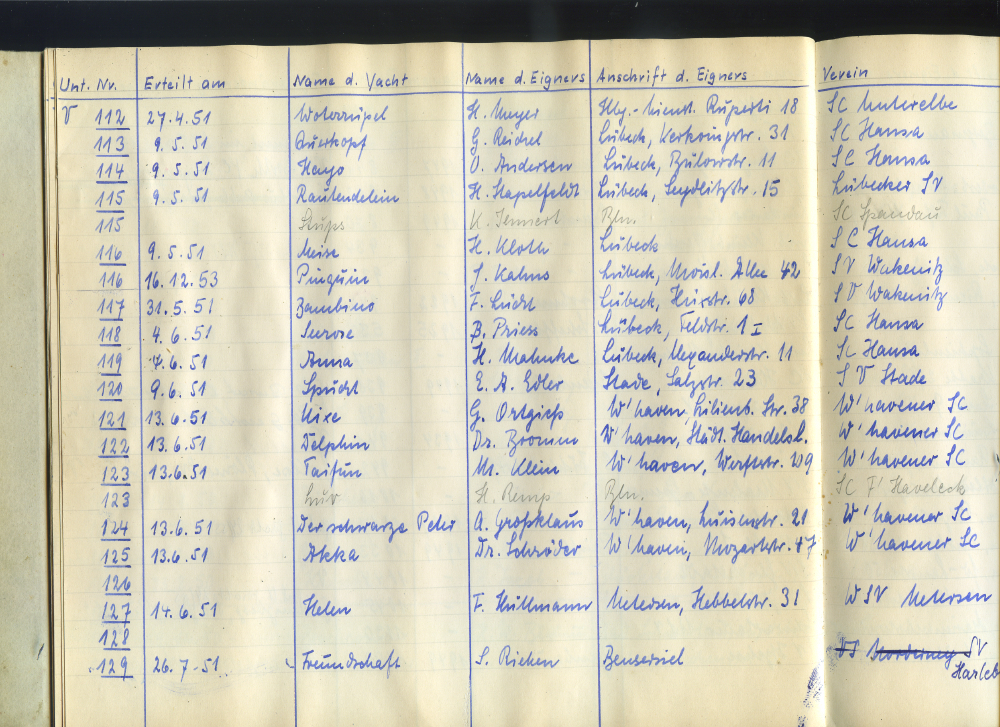 Unt. Nr. Erteilt am Name d. Yacht Name d. Eigners Anschrift d. Eigners Verein
V 112 27.4.51 Woterküpel H. Meyer Hbg.-Nienst. Ruperti 18 SC Unterelbe
113 9.5.51 Querkopf G. Reidel Lübeck, 31 SC Hansa
114 9.5.51 Hayo O. Andersen Lübeck, Bülowstr. 11 SC Hansa
115 9.5.51 Rautendelein H. Stapelfeldt Lübeck, Seydlitzstr. 15 Lübecker SV
115 Stups K. Bln. SC Spandau
116 9.5.51 Meise H. Kloth Lübeck SC Hansa
116 16.12.53 Pinguin J. Kahns Lübeck, Moisl. Allee 42 SV Wakenitz
117 31.5.51 Bambino F. Lübeck, Hüxstr. 68 SV Wakenitz
118 4.6.51 Seerose B. Priess Lübeck, Feldstr. 1 I SC Hansa
119 4.6.51 Anna H. Mahnke Lübeck, Alexanderstr. 11 SC Hansa
120 9.6.51 Specht E. A. Edler Stade, Salzstr. 23 SV Stade
121 13.6.51 Nixe G. Ortgieß W'haven, Lilienb. Str. 38 W'havener SC
122 13.6.51 Delphin Dr. Bromm W'haven, Städt. Handelsl. W'havener SC
123 13.6.51 Taifun M. Klein W'haven, Werftstr. W'havener SC
123 Luv H. Remp Bln. SC F' Haveleck
124 13.6.51 Der schwarze Peter A. Großklaus W'haven, Luisenstr. 21 W'havener SC
125 13.6.51 Akka Dr. Schröder W'haven, Mozartstr. 47 W'havener SC
126
127 14.6.51 Helen F. Hüllmann Uetersen, Hebbelstr. 31 WSV Uetersen
128
129 26.7.51 Freundschaft S. Ricken Bensersiel Norderney SV
Harleb